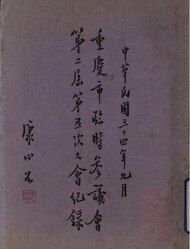 中華民國三十四年九月
重慶市臨時參議會
第二屆第五次大會紀錄
康心如